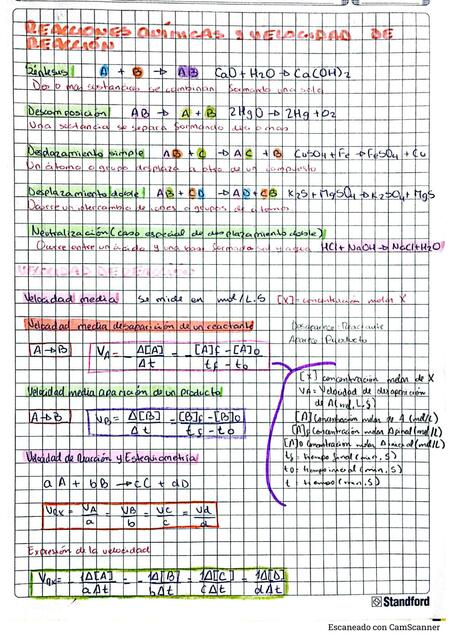 REACCIONES QUÍMICAS Y VELOCIDAD DE
REACCIÓN
Síntesis A + B → AB CaO + H2O → Ca(OH)2
Dos o mas sustancias se combinan formando una sola
Descomposición AB → A + B 2HgO → 2Hg + O2
Una sustancia se separa formando dos o mas
Desplazamiento simple AB + C → AC + B CuSO4 + Fe → FeSO4 + Cu
Un átomo o grupo desplaza a otro de un compuesto
Desplazamiento doble AB + CD → AD + CB K2S + MgSO4 → K2SO4 + MgS
Ocurre un intercambio de iones o grupos de átomos
Neutralización (caso especial de desplazamiento doble)
Ocurre entre un ácido y una base formando sal y agua HCl + NaOH → NaCl + H2O
VELOCIDAD DE REACCIÓN
Velocidad media Se mide en mol/L.S [X] = concentración molar X
Velocidad media desaparición de un reactante
Desaparece: Reactante
Aparece: Producto
A → B VA = - Δ[A] / Δt = - [A]f - [A]0 / tf - t0
Velocidad media aparición de un producto
A → B VB = Δ[B] / Δt = [B]f - [B]0 / tf - t0
[X] concentración molar de X
VA = Velocidad de desaparición
de A (mol/L.S)
[A] Concentración molar de A (mol/L)
[A]f Concentración molar A final (mol/L)
[A]0 Concentración molar A inicial (mol/L)
tf = tiempo final (min, S)
t0 = tiempo inicial (min, S)
t = tiempo (min, S)
Velocidad de Reacción y Estequiometría
aA + bB → cC + dD
VRX = VA / a = VB / b = VC / c = Vd / d
Expresión de la velocidad
VRX = - 1Δ[A] / aΔt = - 1Δ[B] / bΔt = 1Δ[C] / cΔt = 1Δ[D] / dΔt
Standford
Escaneado con CamScanner